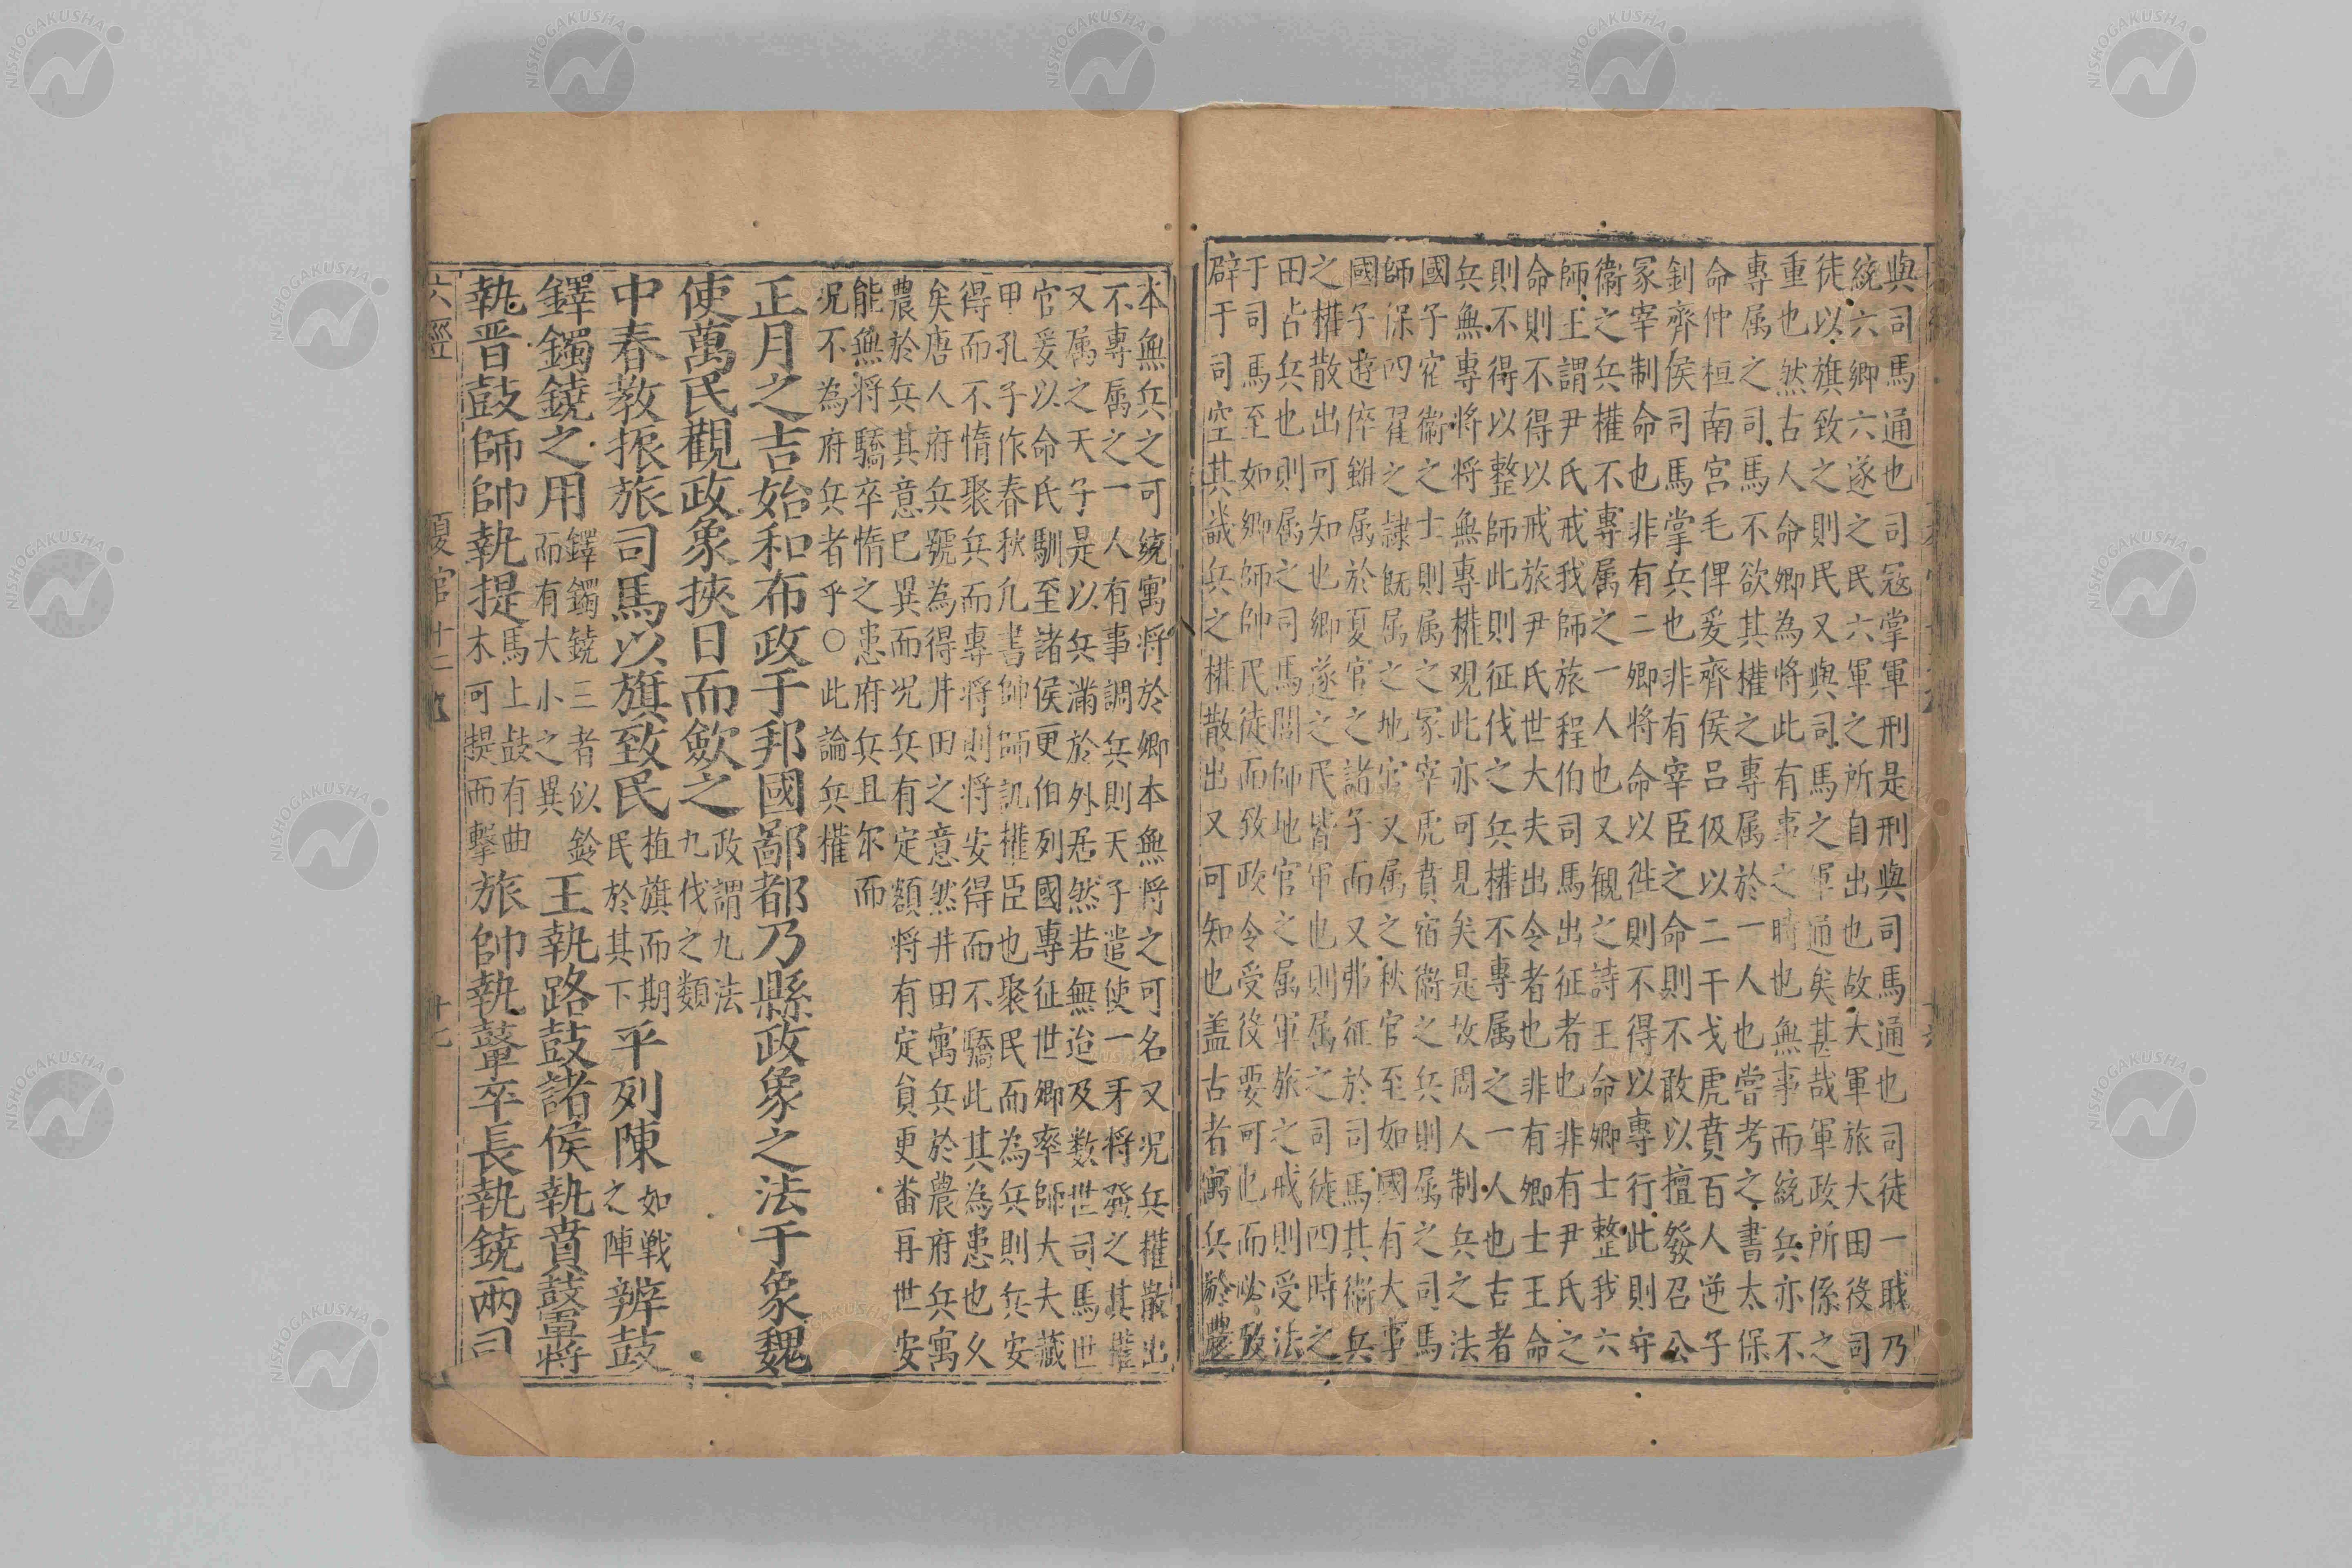 與司馬通也司冦掌軍刑是刑與司馬通也司徒一職乃
統六卿六遂之民六軍之所自出也故大軍旅大田役司
徒以旗致之則民又與司馬之軍通矣甚哉軍政所係之
重也然古人命卿為將此有事之時也無事而統兵亦不
專属之司馬不欲其權之專属於一人也嘗考之書太保
命仲桓南宮毛俾爰齊侯吕伋以二干戈虎賁百人逆子
釗齊侯司馬掌兵也非有宰臣之命則不敢以擅發召公
冢宰制命也非有二卿將命以徃則不得以專行此則守
衞之兵權不專属之一人也又觀之詩王命卿士整我六
師王謂尹氏戒我師旅程伯司馬出征者也非有尹氏之
命則不得以戒旅尹氏世大夫出令者也非有卿士王命
則不得以整師此則征伐之兵權不專属之一人也古者
兵無專將將無專權观此亦可見矣是故周人制兵之法
國子宿衞之士則属之冢宰虎賁宿衞之兵則属之司馬
師保四翟之隷旣属之地官又属之秋官至如國有大事
國子遊倅雖属於夏官之諸子而又弗征於司馬其衞兵
之權散出可知也鄉遂之民皆軍也則属之司徒四時之
田占兵也則属之司馬閭師地官之属軍旅之戒則受法
于司馬至如鄉師帥民徒而致政令受役要可也而必致
辟于司空其識兵之權散出又可知也盖古者寓兵於農
本無兵之可統寓将於卿本無將之可名又况兵權散出
不專属之一人有事調兵則天子遣使一牙將發之其權
又属之天子是以兵滿於外居然若無迨及数世司馬世
官爰以命氏馴至諸侯更伯列國專征世卿率師大夫藏
甲孔子作春秋凡書帥師訊權臣也聚民而為兵則兵安
得而不惰聚兵而專將則将安得而不驕此其為患也久
矣唐人府兵號為得井田之意然井田寓兵於農府兵寓
農於兵其意已異而况兵有定額将有定貟更番再世安
能無将驕卒惰之患府兵且尓而
况不為府兵者乎〇此論兵權
正月之吉始和布政于邦國鄙都乃縣政象之法于象魏
使萬民觀政象挾日而歛之政謂九法九伐之類
中春教振旅司馬以旗致民植旗而期民於其下平列陳如戰之陣辨鼓
鐸鐲鐃之用鐸鐲鐃三者似鈴而有大小之異王執路鼓諸侯執賁鼓軍將
執晋鼓師帥執提馬上鼓有曲木可提而擊旅帥執鼙卒長執鐃兩司
六經
夏官十二
十七